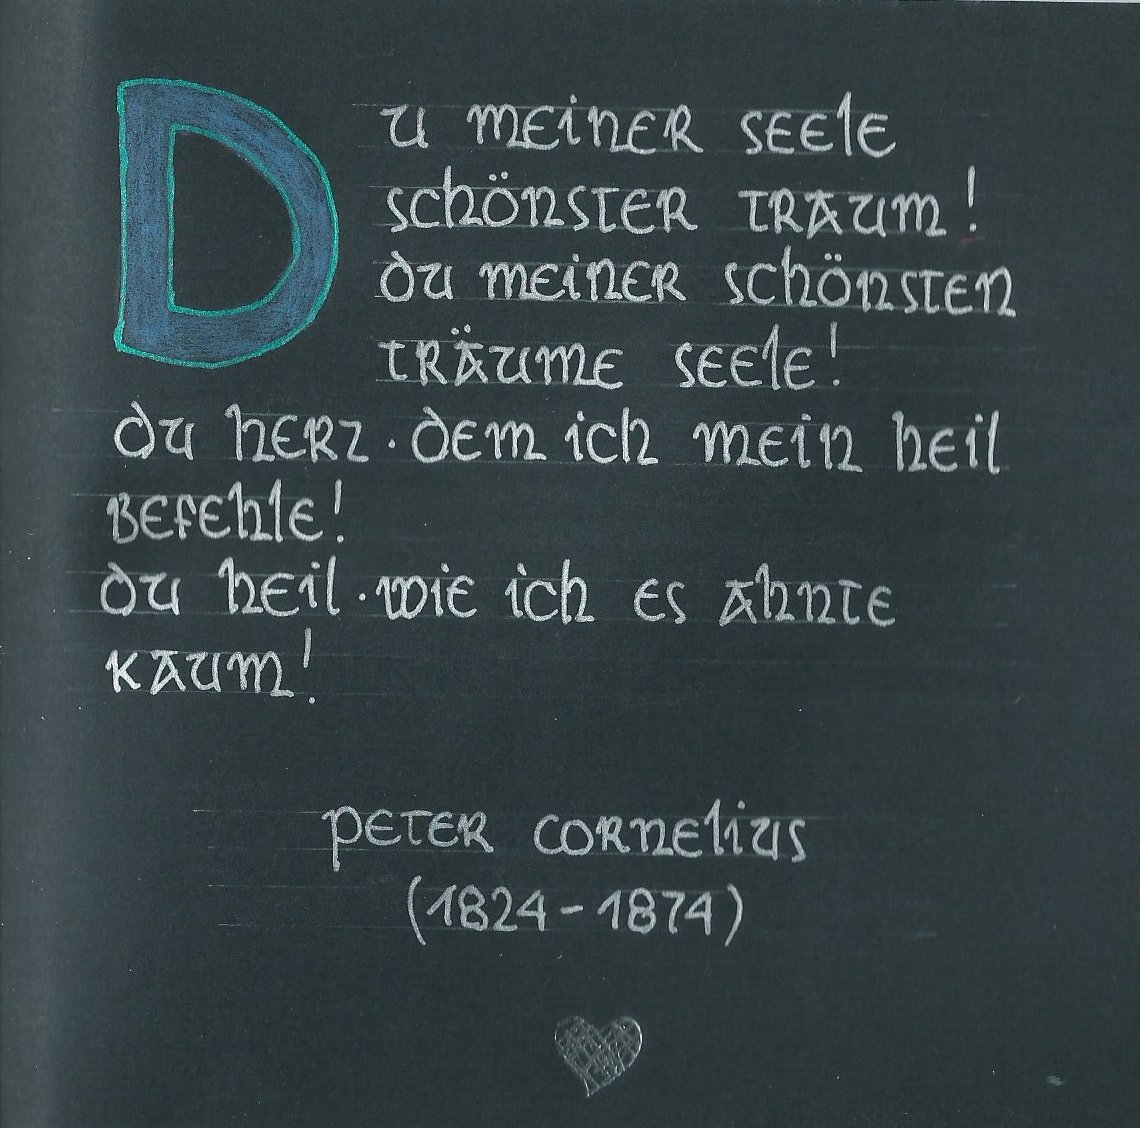 Du meiner Seele
schönster Traum!
Du meiner schönsten
Träume Seele!
Du Herz · dem ich mein Heil
befehle!
Du Heil · wie ich es ahnte
kaum!
Peter Cornelius
(1824 - 1874)